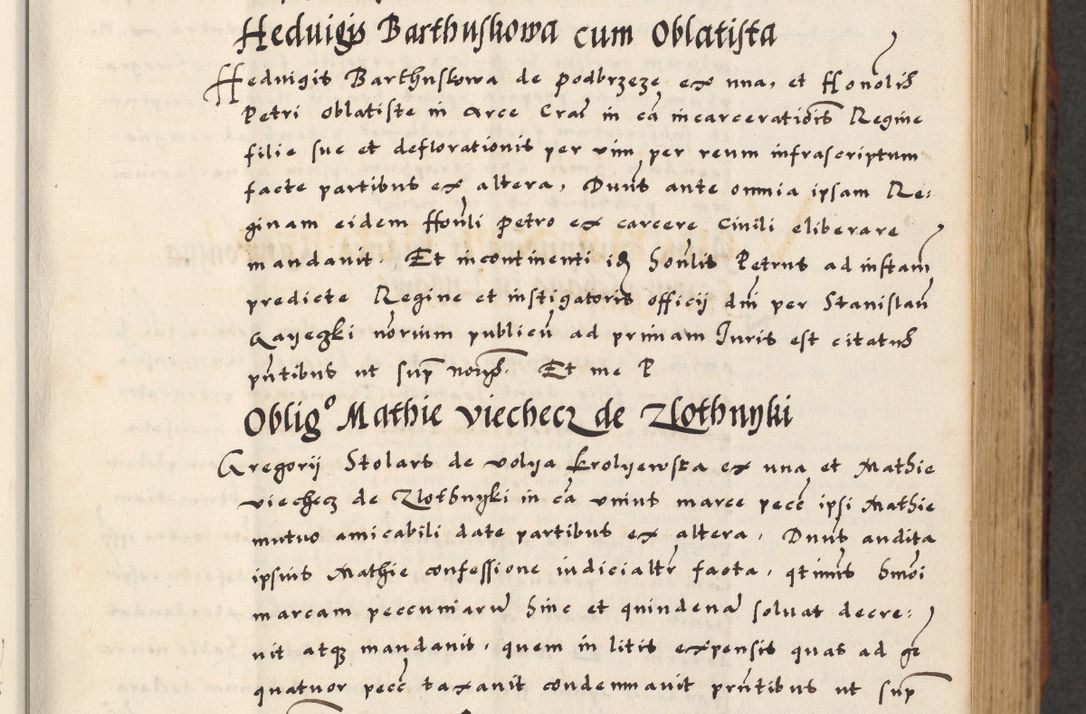 Heduigis Barthuskowa cum Oblatista
Heduigis Barthuskowa de podbrzeze ex una, et Honolis
Petri oblatiste in Arce Cra in ca incarcerationis Regine
filie sue et deflorationis per vim per reum infrascriptum
facte partibus ex altera, Duns ante omnia ipsam Re:
ginam eidem Honli Petro ex carcere Ciuili eliberare
mandauit. Et incontinenti idem honlis Petrus ad instam
predicte Regine et instigatoris officij dni per Stanislau
norium publicu ad primam Juris est citatus
pntibus ut sup Et me P
Oblig° Mathie viechecz de Zlothnyki
Gregorij Stolars de volya krolyewska ex una et Mathie
viechecz de Zlothnyki in ca unius marce pecc ipsi Mathie
mutuo amicabili date partibus ex altera, Duns audita
ipsius Mathie confessione iudicialtr facta, qtinus hmoi
marcam peccuniaru hinc et quindena soluat decre:
uit atq mandauit, quem in litis expensis quas ad gr
quatuor pecc taxauit condemnauit pntibus ut sup